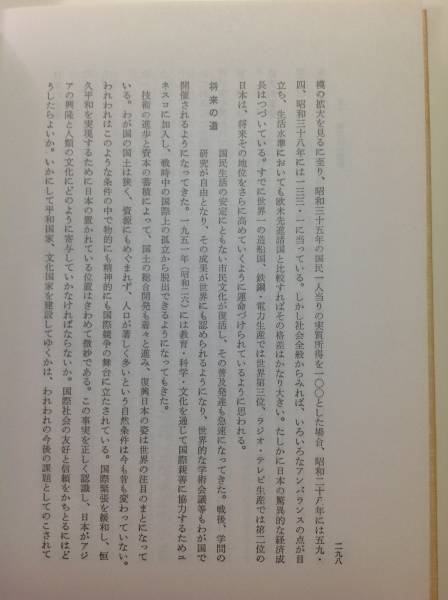 二九八
模の拡大を見るに至り、昭和三十五年の国民一人当りの実質所得を一〇〇とした場合、昭和二十八年には五九・
四、昭和三十八年には一三三・一に当っている。しかし社会全般からみれば、いろいろなアンバランスの点が目
立ち、生活水準においても欧米先進諸国と比較すればその格差はかなり大きい。たしかに日本の驚異的な経済成
長はつづいている。すでに世界一の造船国、鉄鋼・電力生産では世界第三位、ラジオ・テレビ生産では第二位の
日本は、将来その地位をさらに高めていくように運命づけられているように思われる。
将来の道
国民生活の安定にともない市民文化が復活し、その普及発達も急速になってきた。戦後、学問の
研究が自由となり、その成果が世界にも認められるようになり、世界的な学術会議等もわが国で
開催されるようになってきた。一九五一年(昭和二六)には教育・科学・文化を通じて国際親善に協力するためユ
ネスコに加入し、戦時中の国際上の孤立から脱出できるようになってもきた。
技術の進歩と資本の蓄積によって、国土の総合開発も着々と進み、復興日本の姿は世界の注目のまとになって
いる。わが国の国土は狭く、資源にもめぐまれず、人口が著しく多いという自然条件は今も昔も変わっていない。
われわれはこのような条件の中で物的にも精神的にも国際競争の舞台に立たされている。国際緊張を緩和し、恒
久平和を実現するために日本の置かれている位置はきわめて微妙である。この事実を正しく認識し、日本がアジ
アの興隆と人類の文化にどのように寄与していかなければならないか。国際社会の友好と信頼をかちとるにはど
うしたらよいか。いかにして平和国家、文化国家を建設してゆくかは、われわれの今後の課題としてのこされて